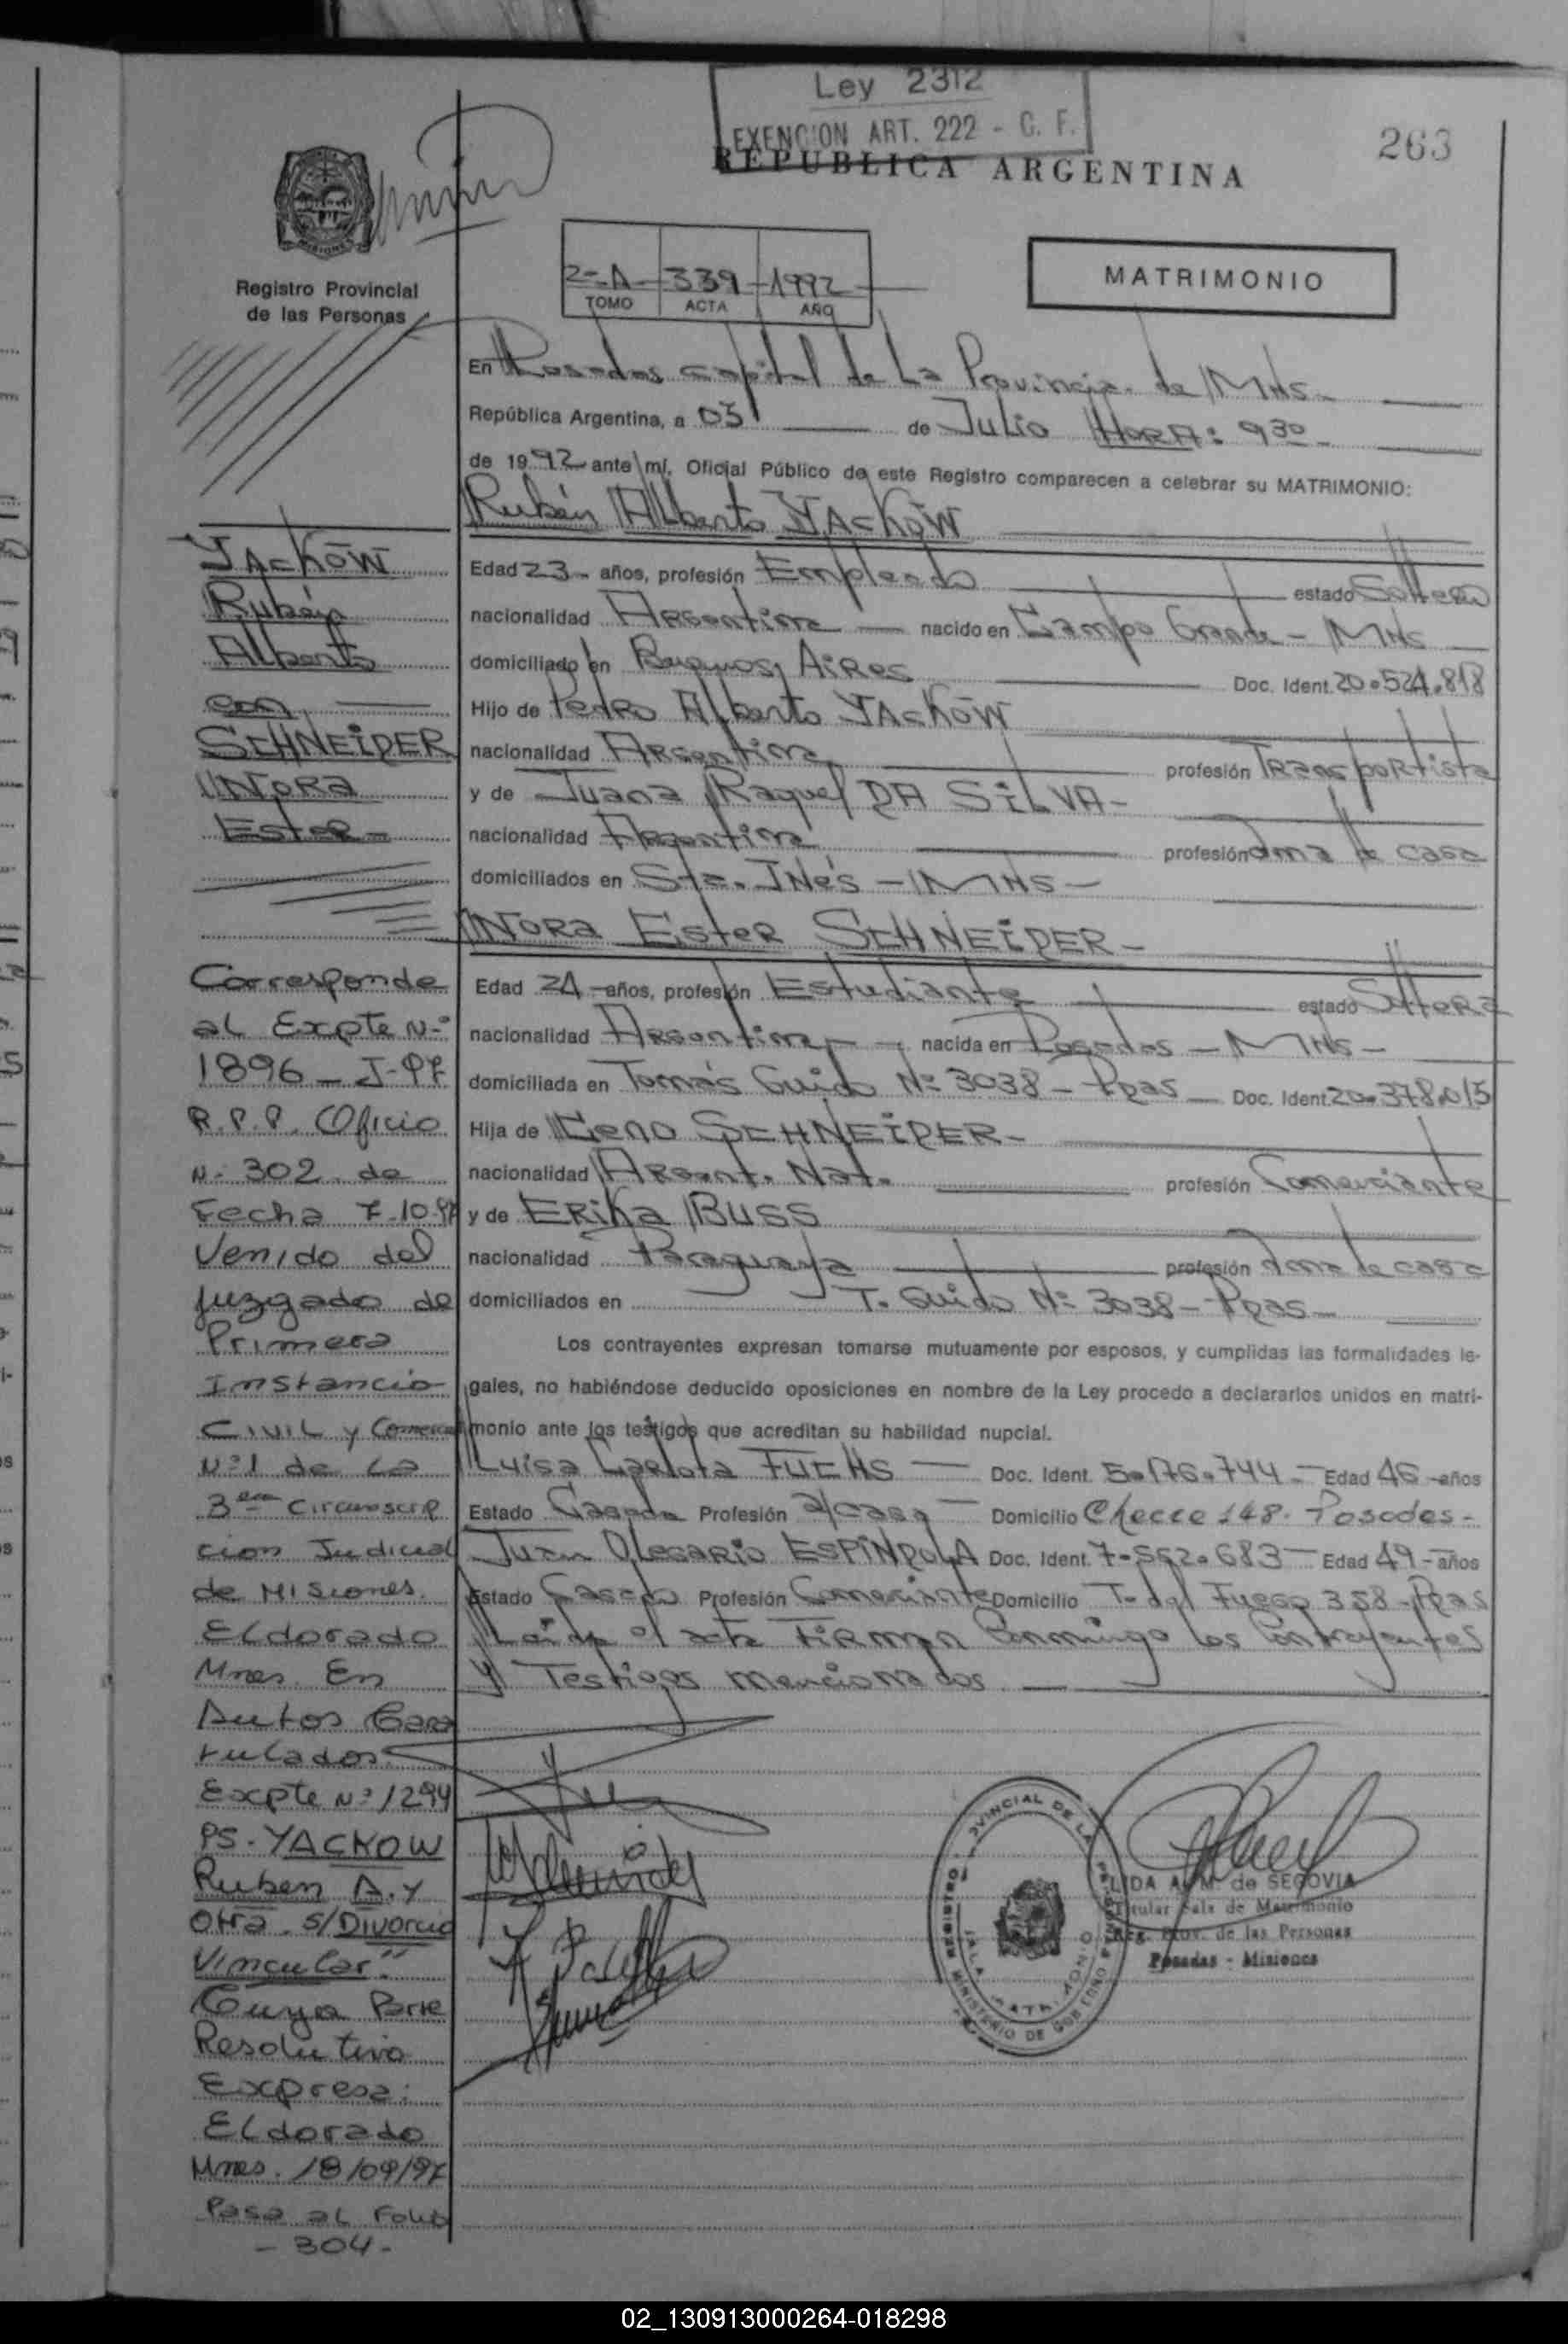 Ley 2312
EXENCION ART. 222 - C. F.
263
REPUBLICA ARGENTINA
MISIONES
Registro Provincial
de las Personas
2-A 339 1992
TOMO ACTA AÑO
MATRIMONIO
En Posadas capital de La Provincia de Mns-
República Argentina, a 03 de Julio HORA: 930-
de 1992 ante mí, Oficial Público de este Registro comparecen a celebrar su MATRIMONIO:
Rubén Alberto YACKÖW
Edad 23- años, profesión Empleado estado Soltero
nacionalidad Argentina nacido en Campo Grande - Mns
domiciliado en Buenos Aires Doc. Ident. 20.524.818
Hijo de Pedro Alberto YACKÖW
nacionalidad Argentina profesión Transportista
y de Juana Raquel DA SILVA-
nacionalidad Argentina profesión ama de casa
domiciliados en Sta. Inés - Mns -
Nora Ester SCHNEIDER-
Edad 24 -años, profesión Estudiante estado Soltera
nacionalidad Argentina nacida en Posadas - Mns -
domiciliada en Tomás Guido Nº 3038 - Pdas Doc. Ident. 20.378.015
Hija de SCHNEIDER-
nacionalidad Argent. Nat. profesión Comerciante
y de Erika BUSS
nacionalidad Paraguaya profesión ama de casa
domiciliados en T. Guido Nº 3038 - Pdas
Los contrayentes expresan tomarse mutuamente por esposos, y cumplidas las formalidades le-
gales, no habiéndose deducido oposiciones en nombre de la Ley procedo a declararlos unidos en matri-
monio ante los testigos que acreditan su habilidad nupcial.
Luisa Carlota FUCHS Doc. Ident. 5.176.744 - Edad 46 -años
Estado Casada Profesión a/casa Domicilio 148. Posadas -
Juan Olegario ESPINDOLA Doc. Ident. 7.562.683 - Edad 49 -años
Estado Casado Profesión Comerciante Domicilio T. del Fuego 358 - Pdas
Leída el acta Firman Conmigo los Contrayentes
y Testigos mencionados
YACKÖW
Rubén
Alberto
con
SCHNEIDER
Nora
Ester-
Corresponde
al Expte Nº
1896 - J-97
R.P.P. Oficio
Nº 302 de
Fecha 7-10-97
Venido del
Juzgado de
Primera
Instancia
Civil y Comercial
Nº 1 de La
3era Circunscrip
cion Judicial
de Misiones.
Eldorado
Mnes. En
Autos Cara
tulados:
Expte Nº 1294
PS. YACKOW
Ruben A. y
Otra s/Divorcio
Vincular"
Cuya Parte
Resolutiva
Expresa:
Eldorado
Mnes. 18/09/97
Pasa al Folio
- 304 -
LIDA A. M. de SEGOVIA
Titular Sala de Matrimonio
Reg. Prov. de las Personas
Posadas - Misiones
02_130913000264-018298